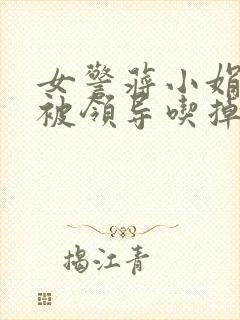 女警蒋小娟
被领导喫掉
揭江青